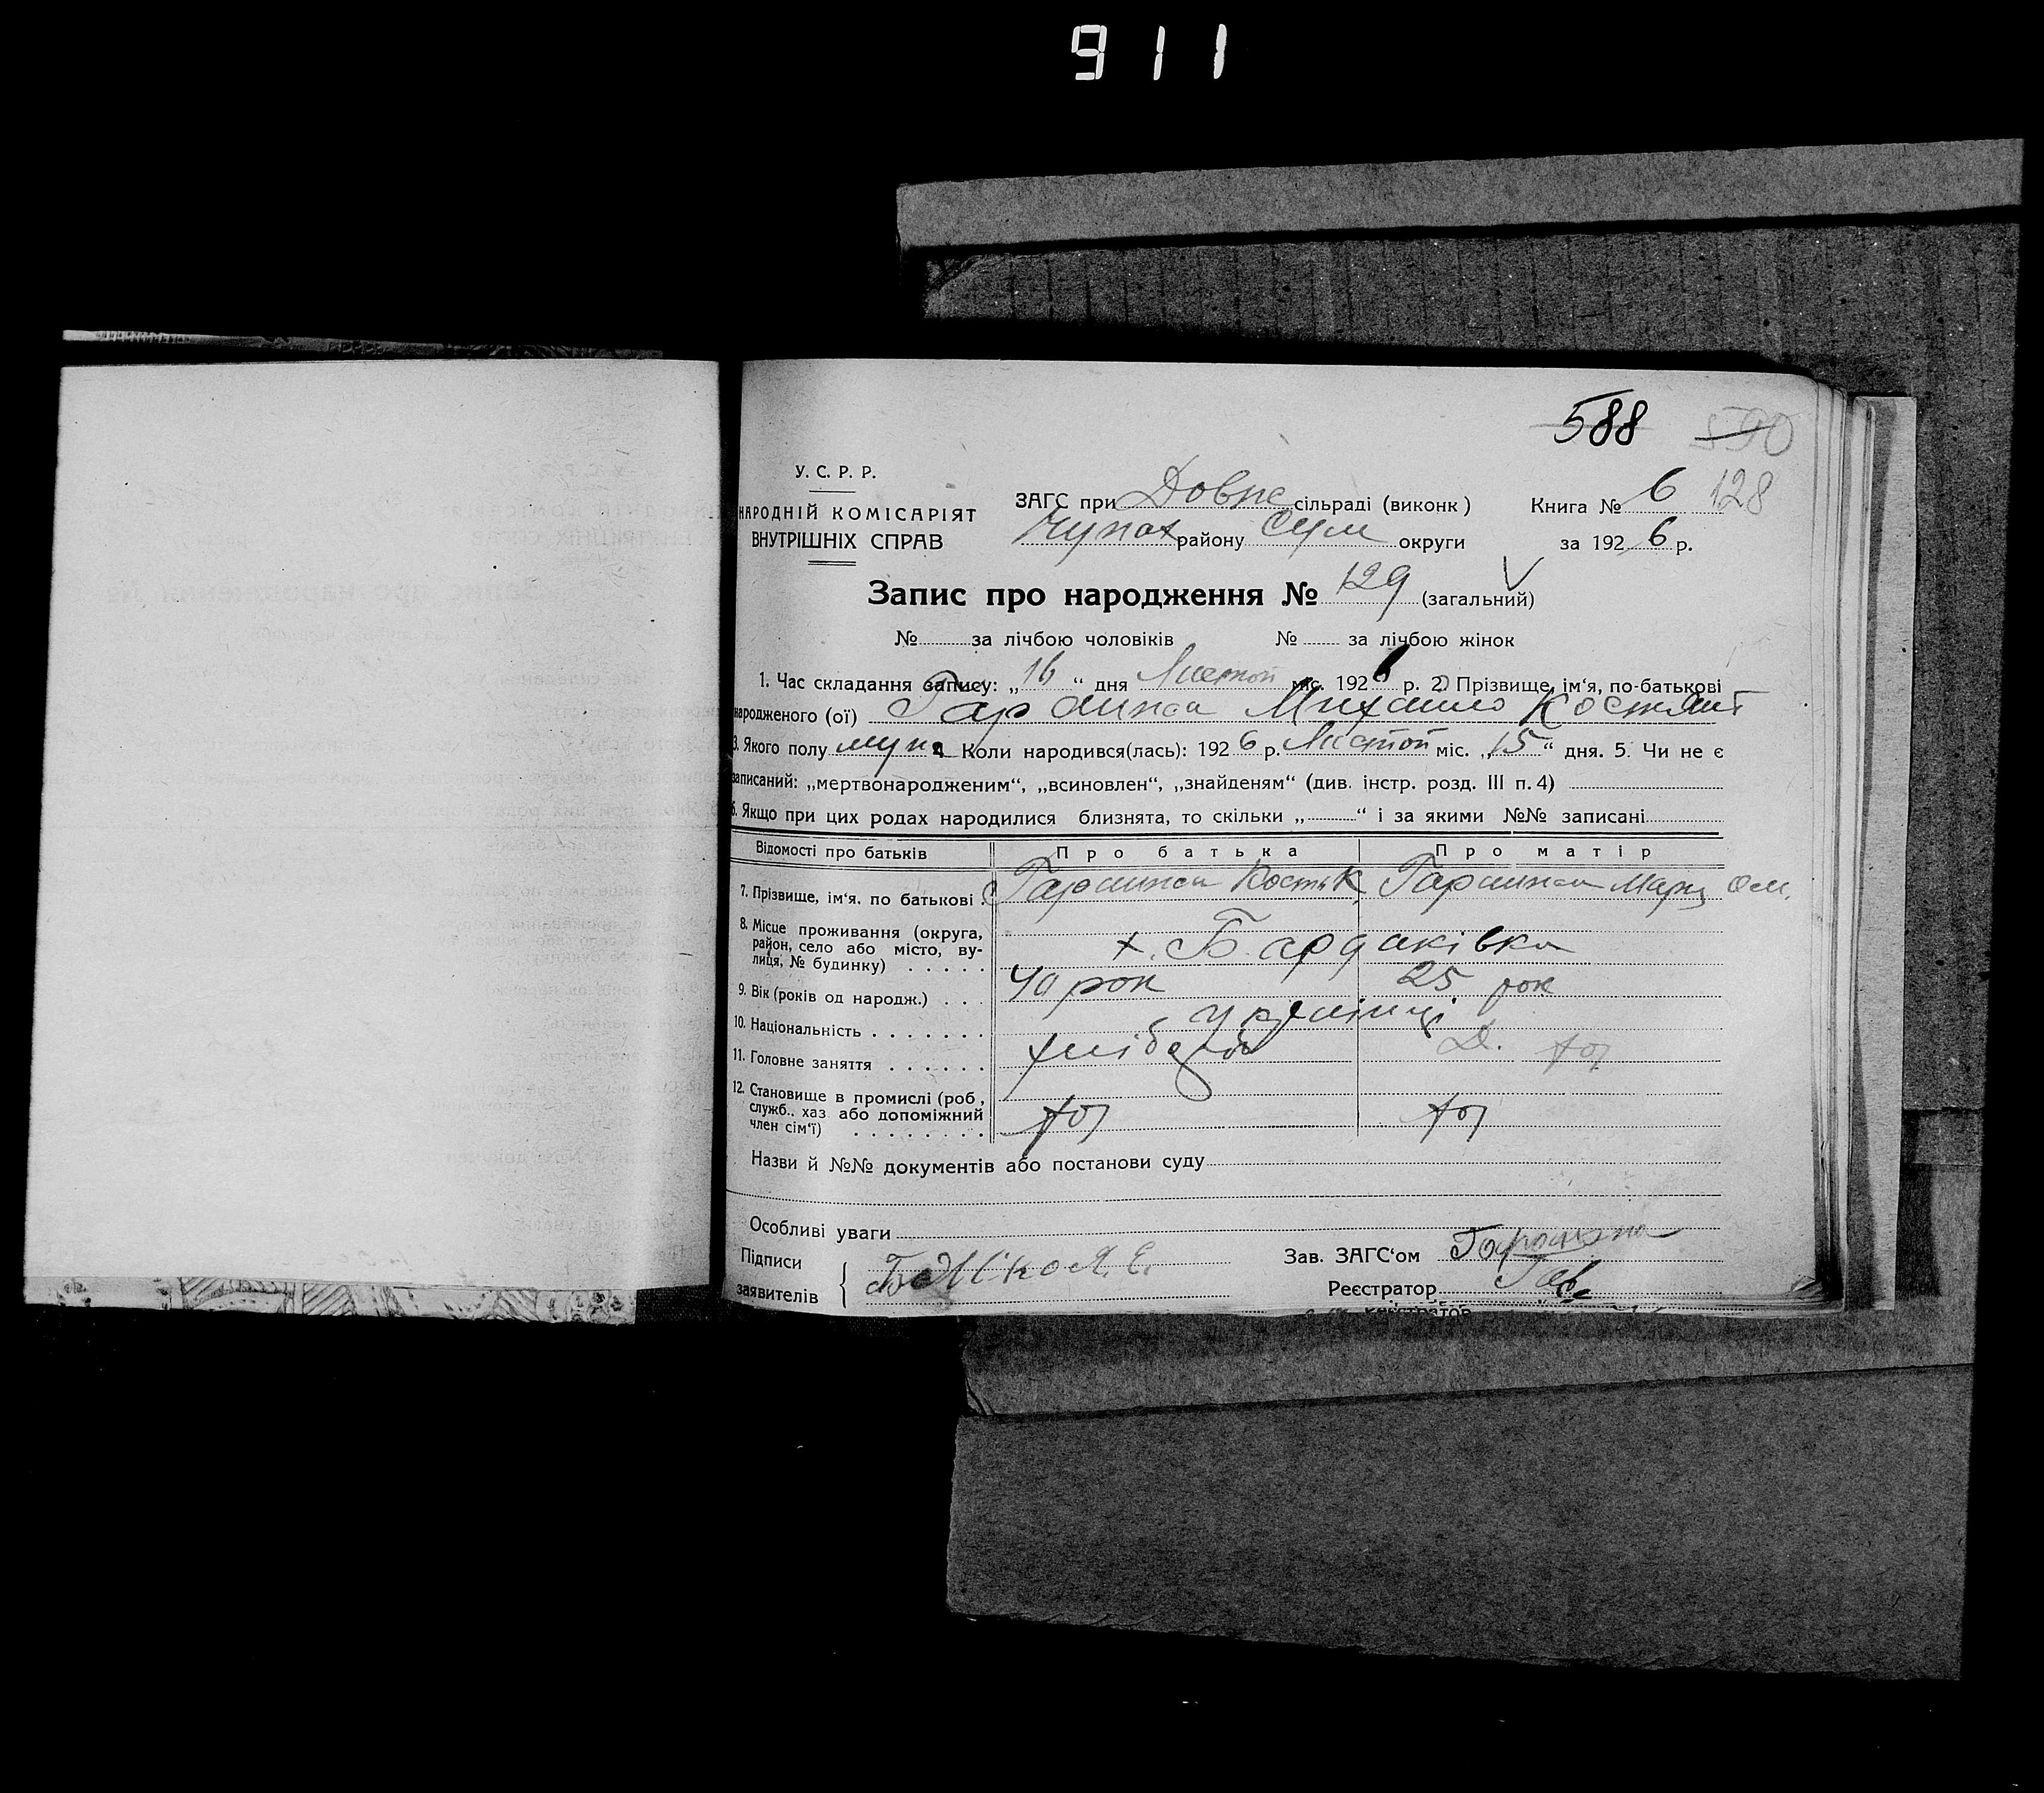 911
588 590
У. С. Р. Р.
НАРОДНІЙ КОМІСАРІЯТ
ВНУТРІШНІХ СПРАВ
ЗАГС при Довже сільраді (виконк)
Чупах району Сум округи
Книга № 6 128
за 1926 р.
Запис про народження № 129 (загальний)
№ за лічбою чоловіків № за лічбою жінок
1. Час складання запису: „16“ дня Листоп міс. 1926 р. 2) Прізвище, ім‘я, по-батькові
народженого (ої) Михайло Костянт
3. Якого полу муж 4. Коли народився(лась): 1926 р. Листоп міс. „15“ дня. 5. Чи не є
записаний: „мертвонародженим“, „всиновлен“, „знайденям“ (див. інстр. розд. III п. 4)
6. Якщо при цих родах народилися близнята, то скільки „ “ і за якими №№ записані
Відомості про батьків Про батька Про матір
7. Прізвище, ім‘я, по батькові Ом.
8. Місце проживання (округа, район, село або місто, вулиця, № будинку) х. Бардаківка
9. Вік (років од народж.) 40 рок 25 рок
10. Національність українці
11. Головне заняття хлібороб Д. тож
12. Становище в промислі (роб, служб., хаз або допоміжний член сім‘ї) тож тож
Назви й №№ документів або постанови суду
Особливі уваги
Підписи
заявителів
Зав. ЗАГС‘ом
Реєстратор